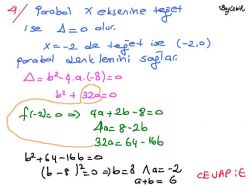 4/ Parabol X eksenine teğet
ise Δ=0 olur.
X=-2 de teğet ise (-2,0)
parabol denklemini sağlar.
Δ=b²-4.a.(-8)=0
b²+32a=0
f(-2)=0 ⇒ 4a+2b-8=0
4a=8-2b
32a=64-16b
b²+64-16b=0
(b-8)²=0 ⇒ b=8 ∧ a=-2
a+b=6
CEVAP:E